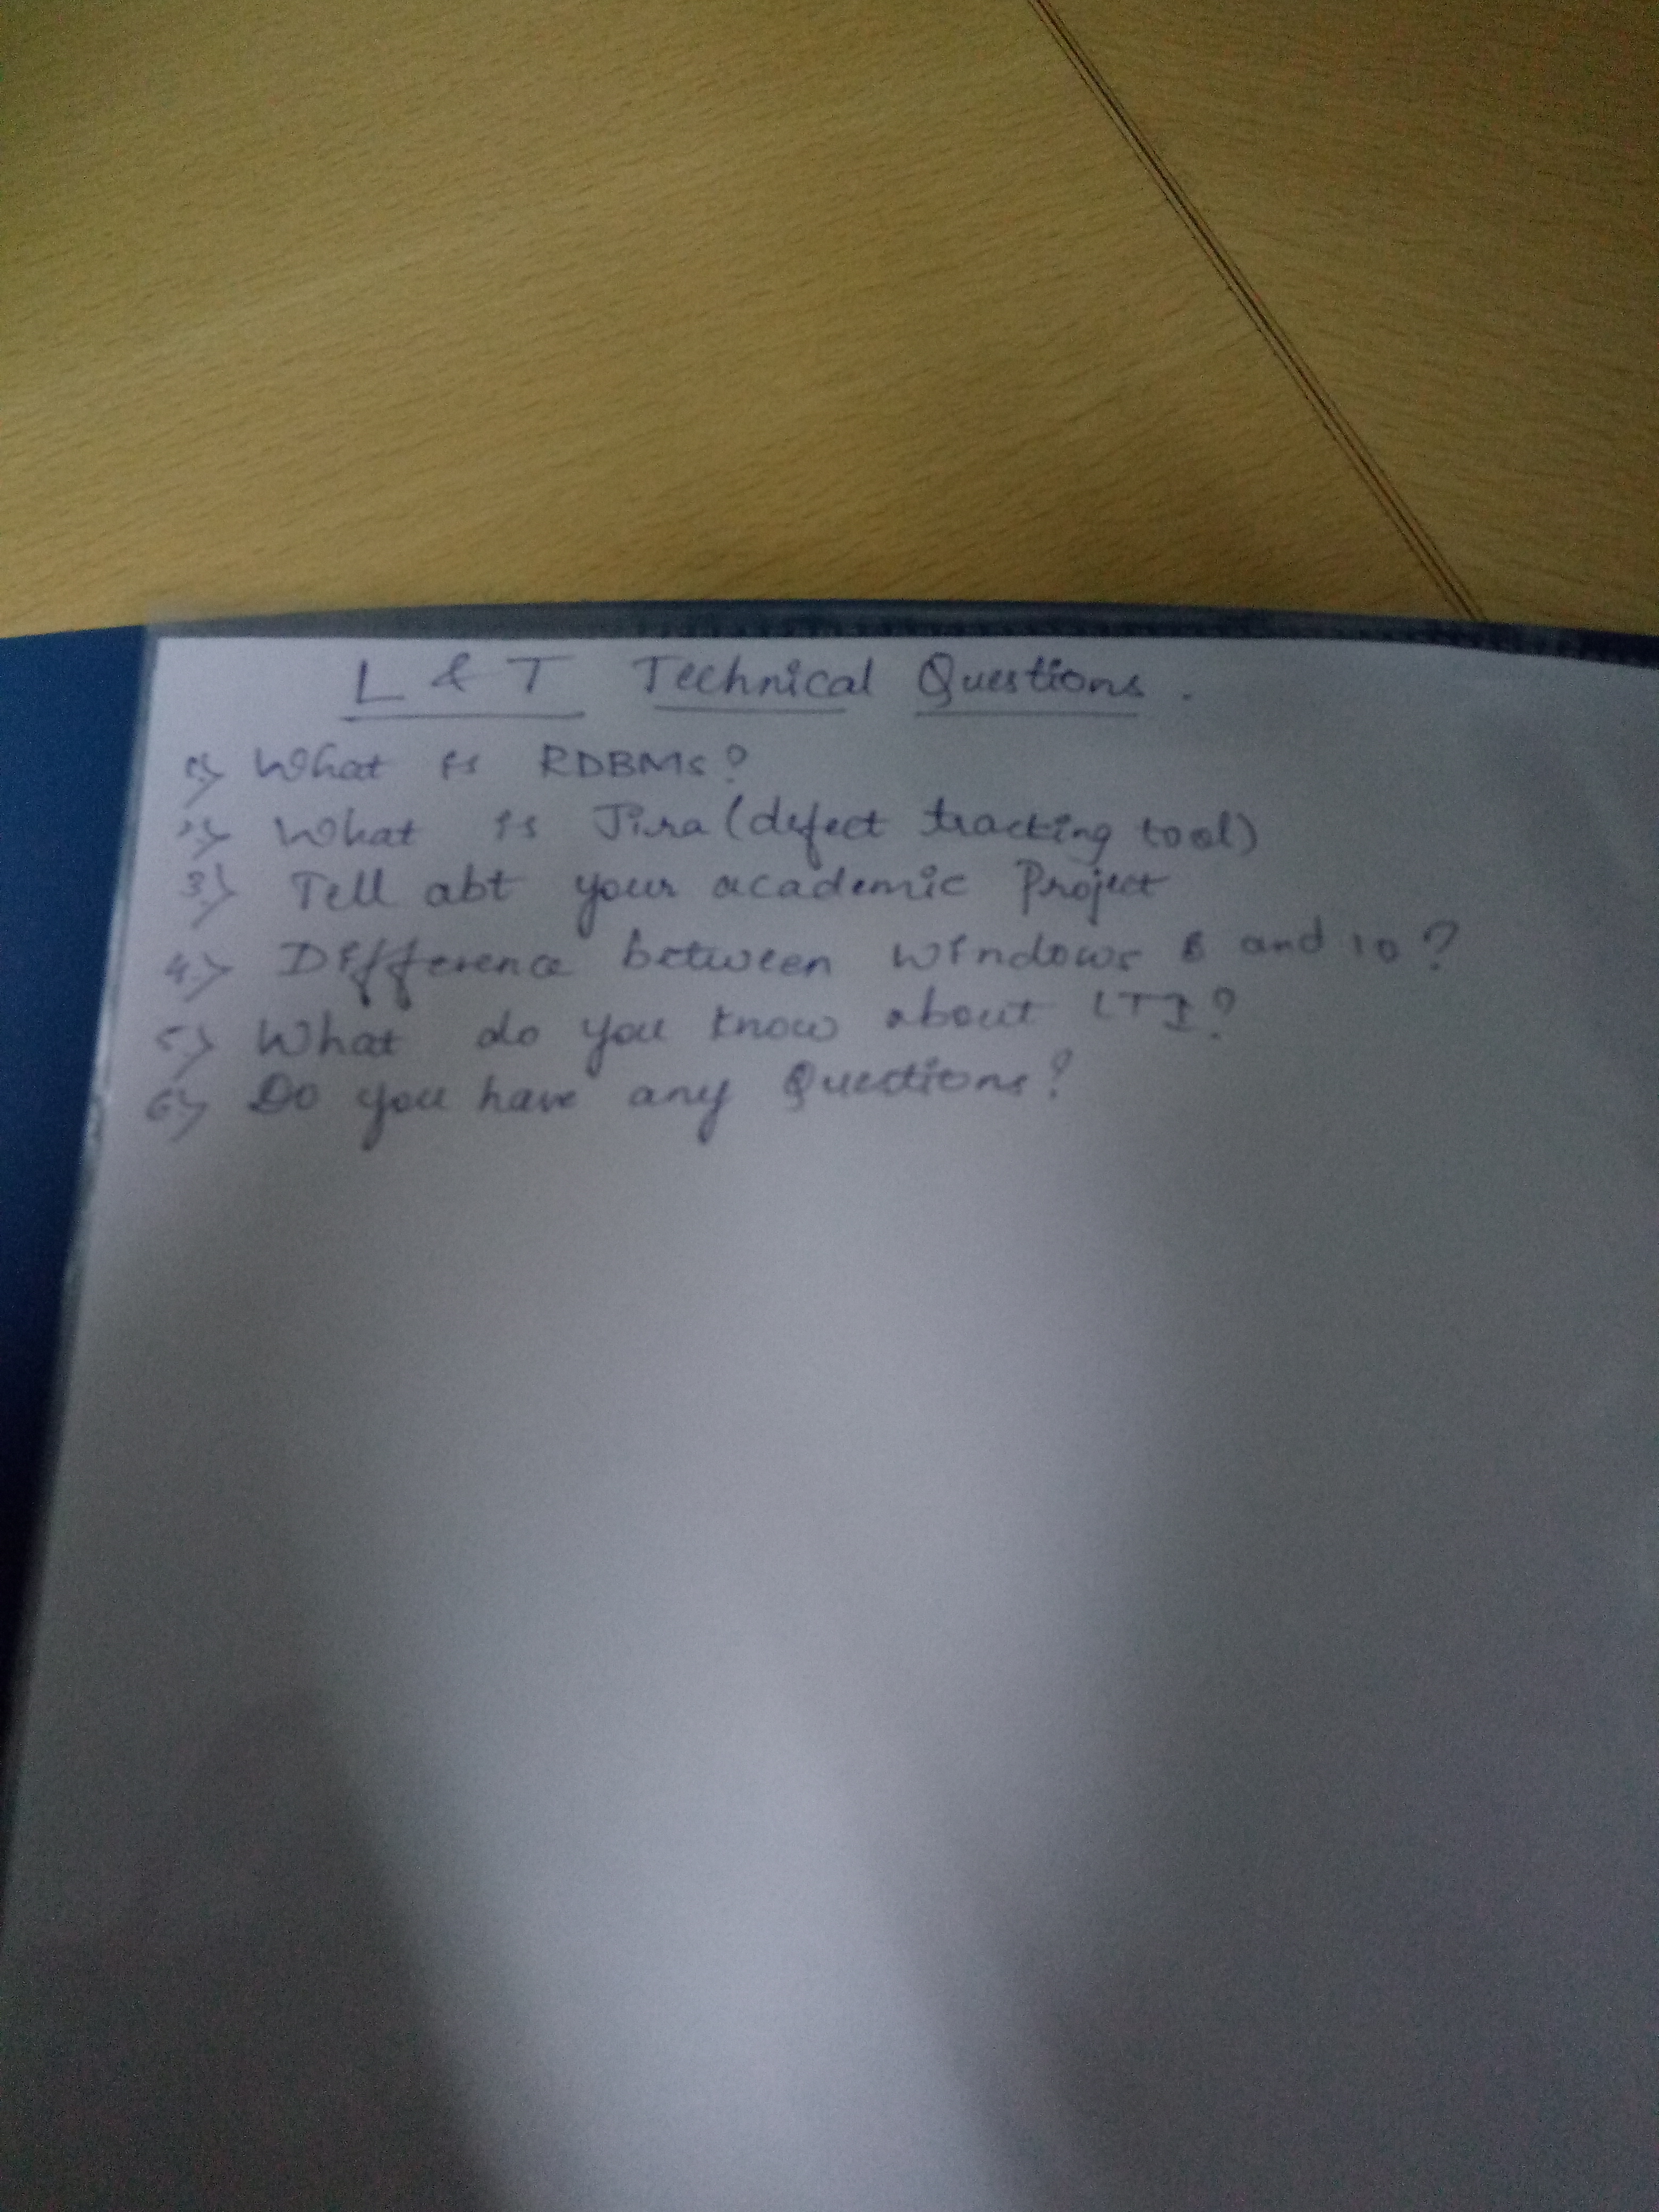 L & T Technical Questions.
1.> What is RDBMS?
2.> What is Jira (defect tracking tool)
3.> Tell abt your academic Project
4.> Difference between windows 8 and 10?
5.> What do you know about LTI?
6.> Do you have any Questions?